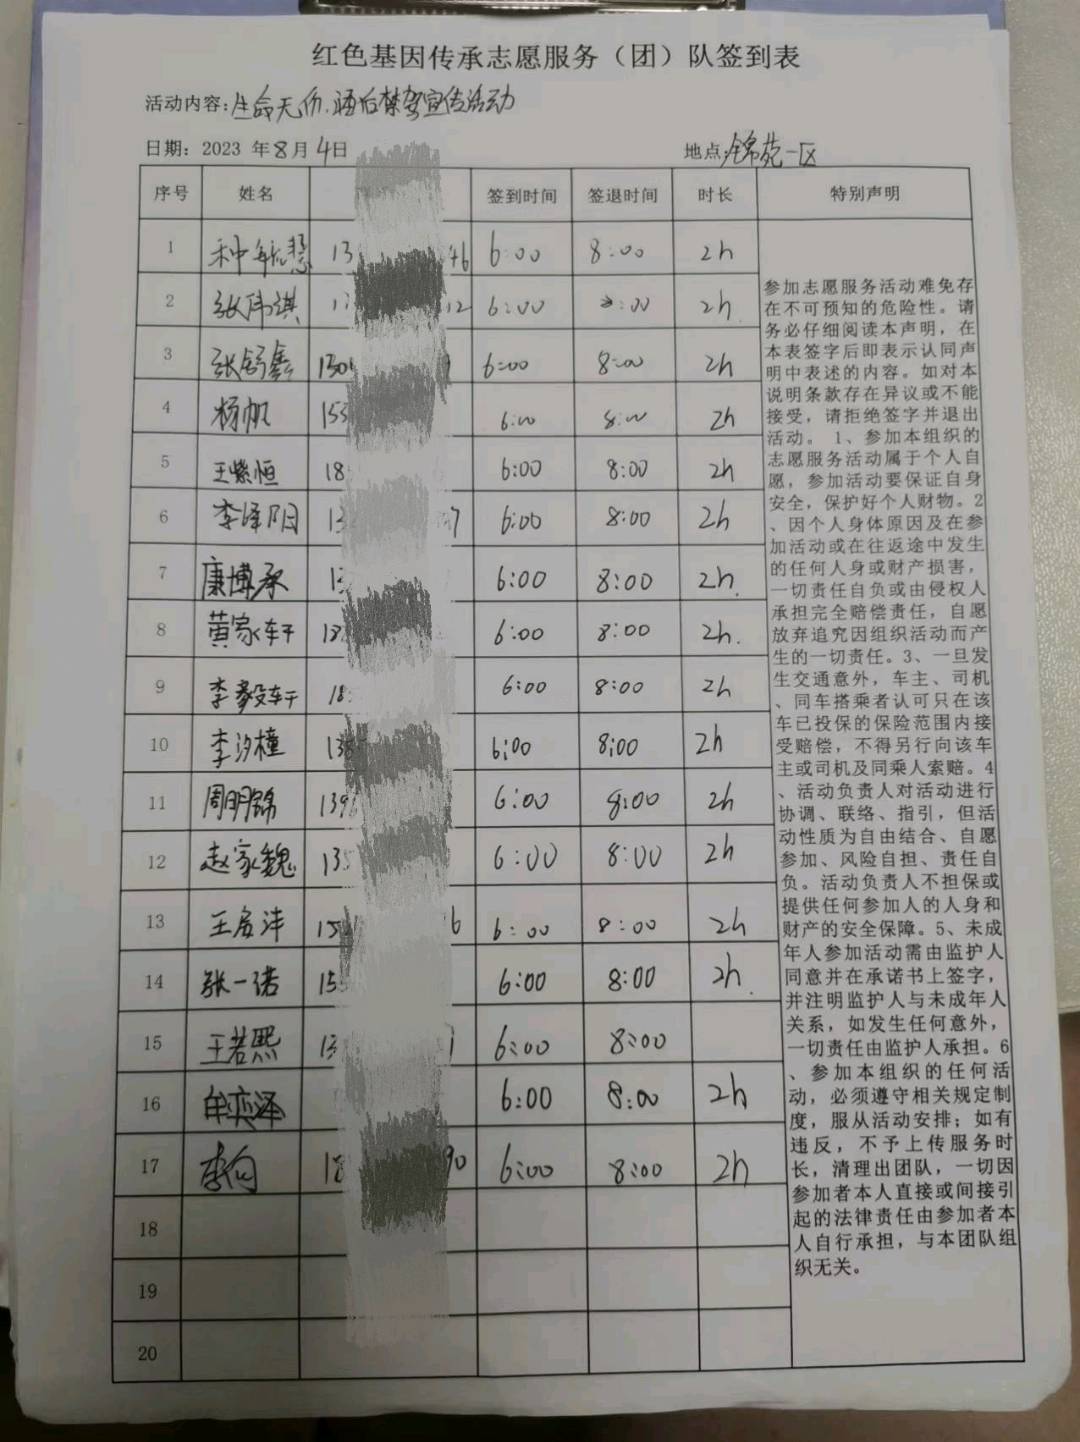 红色基因传承志愿服务（团）队签到表
活动内容:生命无价.酒后禁驾宣传活动
日期：2023 年8月4日 地点:锦苑一区
序号 姓名 签到时间 签退时间 时长 特别声明
1 13 46 6:00 8:00 2h
2 张伟淇 12 6:00 :00 2h
3 张舒鑫 130 6:00 8:00 2h
4 杨帆 153 6:00 8:00 2h
5 王紫恒 18 6:00 8:00 2h
6 李泽阳 13 7 6:00 8:00 2h
7 康博承 13 6:00 8:00 2h
8 黄家轩 18 6:00 8:00 2h.
9 李毅轩 18 6:00 8:00 2h
10 李汐橦 138 6:00 8:00 2h
11 周明锦 139 6:00 8:00 2h
12 赵家魏 135 6:00 8:00 2h
13 王启沣 15 6 6:00 8:00 2h
14 张一诺 155 6:00 8:00 2h
15 王若熙 13 6:00 8:00
16 牟奕泽 6:00 8:00 2h
17 李向 18 90 6:00 8:00 2h
18
19
20
参加志愿服务活动难免存
在不可预知的危险性。请
务必仔细阅读本声明，在
本表签字后即表示认同声
明中表述的内容。如对本
说明条款存在异议或不能
接受，请拒绝签字并退出
活动。 1、参加本组织的
志愿服务活动属于个人自
愿，参加活动要保证自身
安全，保护好个人财物。2
、因个人身体原因及在参
加活动或在往返途中发生
的任何人身或财产损害，
一切责任自负或由侵权人
承担完全赔偿责任，自愿
放弃追究因组织活动而产
生的一切责任。3、一旦发
生交通意外，车主、司机
、同车搭乘者认可只在该
车已投保的保险范围内接
受赔偿，不得另行向该车
主或司机及同乘人索赔。4
、活动负责人对活动进行
协调、联络、指引，但活
动性质为自由结合、自愿
参加、风险自担、责任自
负。活动负责人不担保或
提供任何参加人的人身和
财产的安全保障。5、未成
年人参加活动需由监护人
同意并在承诺书上签字，
并注明监护人与未成年人
关系，如发生任何意外，
一切责任由监护人承担。6
、参加本组织的任何活
动，必须遵守相关规定制
度，服从活动安排；如有
违反，不予上传服务时
长，清理出团队，一切因
参加者本人直接或间接引
起的法律责任由参加者本
人自行承担，与本团队组
织无关。